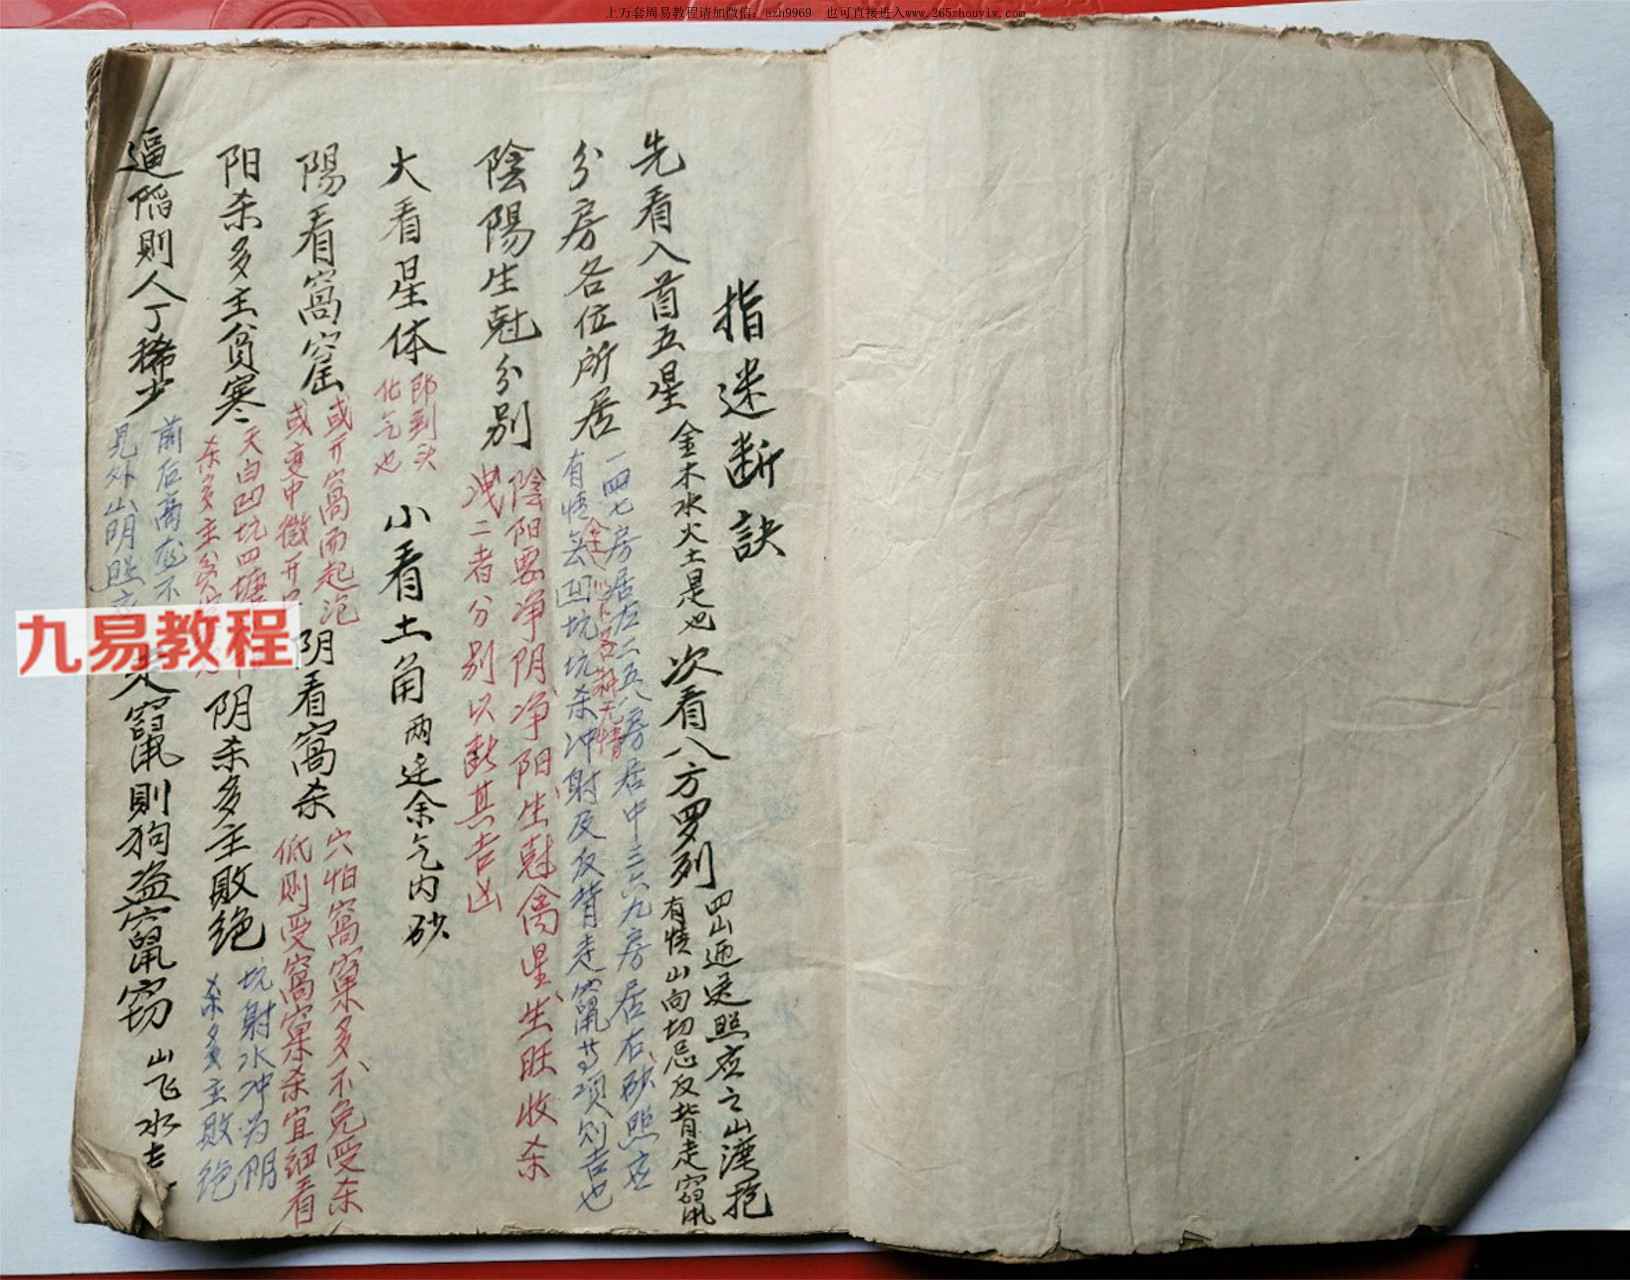 上万套周易教程请加微信：szh9969　也可直接进入www.265zhouyiw.com
指迷断訣
先看入首五星
金木水火土是也
次看八方罗列
四山迎送照应之山湾抱
有情山向切忌反背走竄
分房各位所居
一四七房居左二五八房居中三六九房居右砂照应
有情无凹坑坑杀冲射及反背走竄等项则吉也
陰陽生尅分别
陰阳要净阴净阳生尅禽星生旺收杀
洩二者分别以断其吉凶
大看星体
即到头
化气也
小看土角
两边余气内砂
陽看窩窑
或开窩而起泡
或变中微开
阴看窩杀
穴怕窩窠多不免受杀
低则受窩窠杀宜細看
阳杀多主貧寒
天白凹坑四塘
杀多主
阴杀多主敗绝
坑射水冲为阴
杀多主敗绝
逼陷則人丁稀少
前后高应不
見外山明照
走竄則狗盗竄窃
山飞水走
九易教程